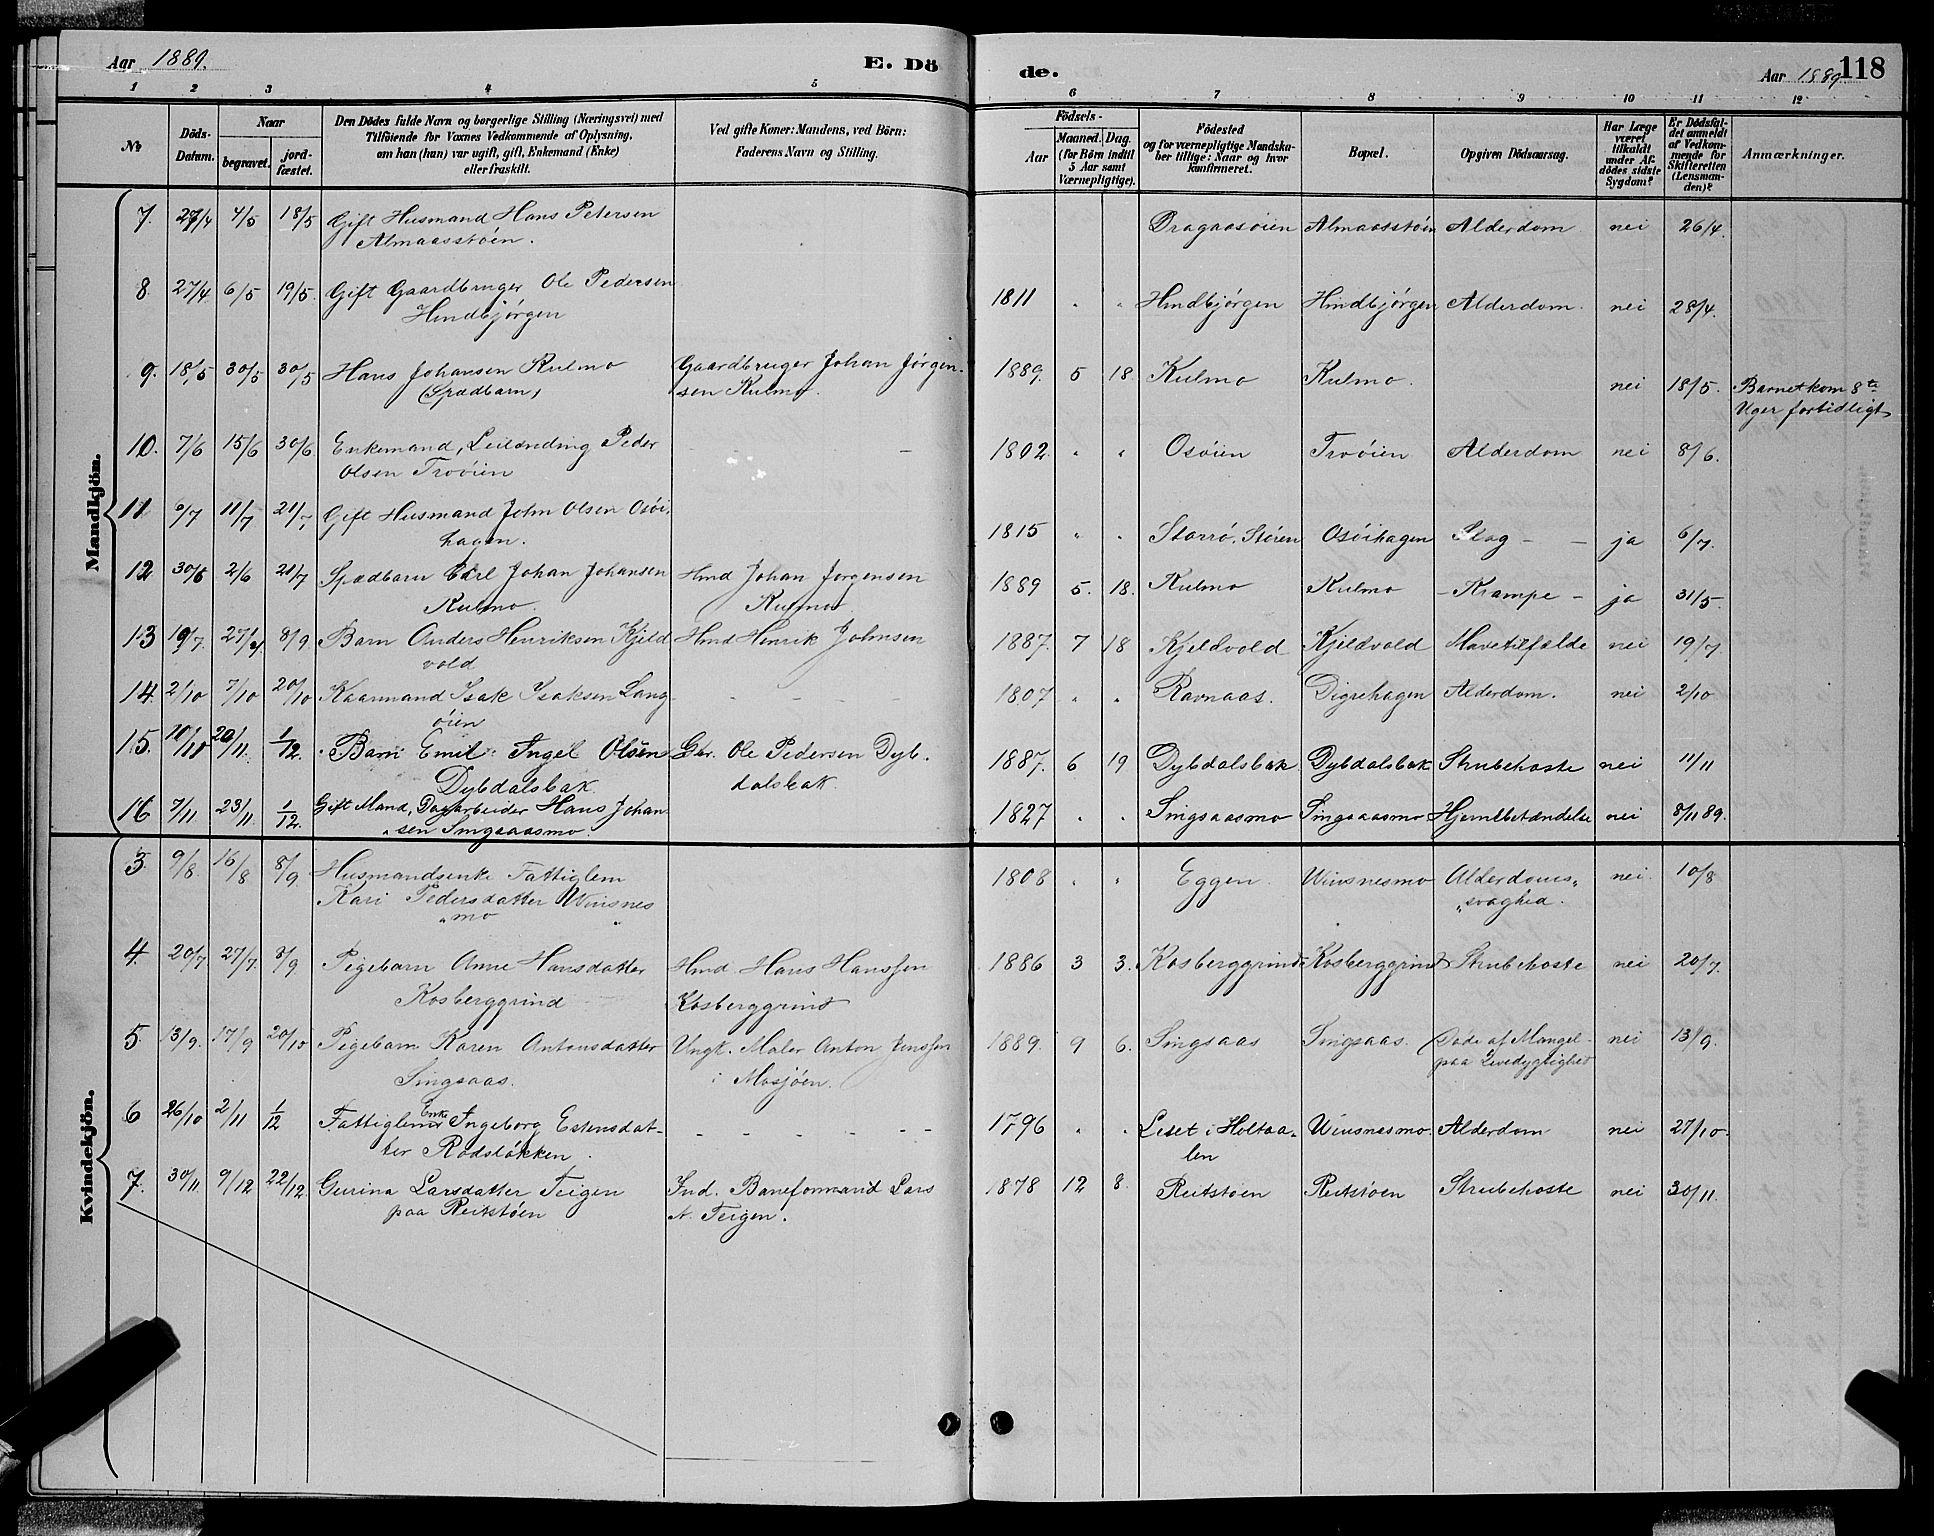 Aar 1889.
E. Dö
de.
Aar 1889
118
1 2 3 4 5 6 7 8 9 10 11 12
No
Döds-
Datum.
Naar
begravet.
jord-
fæstet.
Den Dödes fulde Navn og borgerlige Stilling (Næringsvei) med
Tilföiende for Voxnes Vedkommende af Oplysning,
om han (hun) var ugift, gift, Enkemand (Enke)
eller fraskilt.
Ved gifte Koner: Mandens, ved Börn:
Faderens Navn og Stilling.
Födsels-
Aar
Maaned.
Dag.
(for Börn indtil
5 Aar samt
Værnepligtige).
Födested
og for værnepligtige Mandska-
ber tillige: Naar og hvor
konfirmeret.
Bopæl.
Opgiven Dödsaarsag.
Har Læge
været
tilkaldt
under Af-
dödes sidste
Sygdom?
Er Dödsfal-
det anmeldt
af Vedkom-
mende for
Skifteretten
(Lensman-
den)?
Anmærkninger.
Mandkjön.
7. 4/5 18/5 Gift Husmand Hans Petersen Dragaasöien Almaasstöen Alderdom nei 26/4.
Almaasstöen.
8. 27/4 6/5 19/5. Gift Gaardbruger Ole Pedersen 1811 " " Hindbjörgen Hindbjörgen Alderdom. nei 28/4.
Hindbjörgen
9. 18/5 30/5 30/5 Hans Johansen Kulmo Gaardbruger Johan Jörgen- 1889. 5 18. Kulmo Kulmo. nei 18/5. Barnet kom 8te
(Spædbarn) sen Kulmo. Uger fortidligt
10. 7/6 15/6 30/6 Enkemand, Leilænding Peder 1802. " " Osöien Troöien Alderdom nei 8/6.
Olsen Troöien
11. 6/7 11/7 21/7 Gift Husmand John Olsen Osöi- 1815 " " Storrö, Stören Osöihagen Slag - - ja 6/7.
hagen.
12 2/6 21/7 Spædbarn Carl Johan Johansen Hmd Johan Jorgensen 1889 5. 18. Kulmo Kulmo - Krampe - ja 31/5.
Kulmo. Kulmo
13 19/7. 8/9. Barn Anders Henriksen Kjeld Hmd Henrik Johnsen 1887. 7 18 Kjeldvold Kjeldvold Mavetilfælde nei 19/7
vold
14. 2/10 7/10 20/10 Kaarmand Isak Isaksen Lang- - - - 1807 " " Ravnaas. Digrehagen Alderdom. nei 2/10
öien
15. 20/11. 1/12. Barn Emil Ingel Olsen Gbr. Ole Pedersen Dyb- 1887. 6 19 Dybdalsbak Dybdalsbak Strubehoste nei 11/11
Dybdalsbak. dalsbak.
16 7/11 23/11 1/12. Gift Mand, Dagarbeider Hans Johan- 1827 " " Singsaasmo Singsaasmo Hjernebetændelse nei 8/11 89.
"sen Singsaasmo.
Kvindekjön.
3. 9/8. 16/8 8/9. Husmandsenke Fattiglem 1808 " " Eggen. Winsnesmo Alderdoms" nei 10/8
Kari Pedersdatter Winsnes "svaghed.
"mo "
4. 20/7 27/7. 8/9 Pigebarn Anne Hansdatter Hmd Hans Hanssen 1886 3 3. Kosberggrind Kosberggrind Strubehoste nei 20/7.
Kosberggrind Kosberggrind
5. 13/9. 17/9 20/10 Pigebarn Karen Antonsdatter Ungk. Maler Anton Jenssen 1889. 9 6. Singsaas Singsaas. Döde af Mangel- nei 13/9.
Singsaas. i Mosjöen. paa Livedygtighed
6 26/10 2/11 1/12 Fattiglem Enke Ingeborg Estensdat- - - - - - 1796 " " Leset i Holtaa- Winsnesmo. Alderdom nei 27/10.
ter Rödslökken. len
7. 30/11. 9/12 22/12. Gurina Larsdatter Teigen Ind. Baneformand Lars 1878 12 8. Reitstöen Reitstöen Strubehoste nei 30/11.
paa Reitstöen N. Teigen.